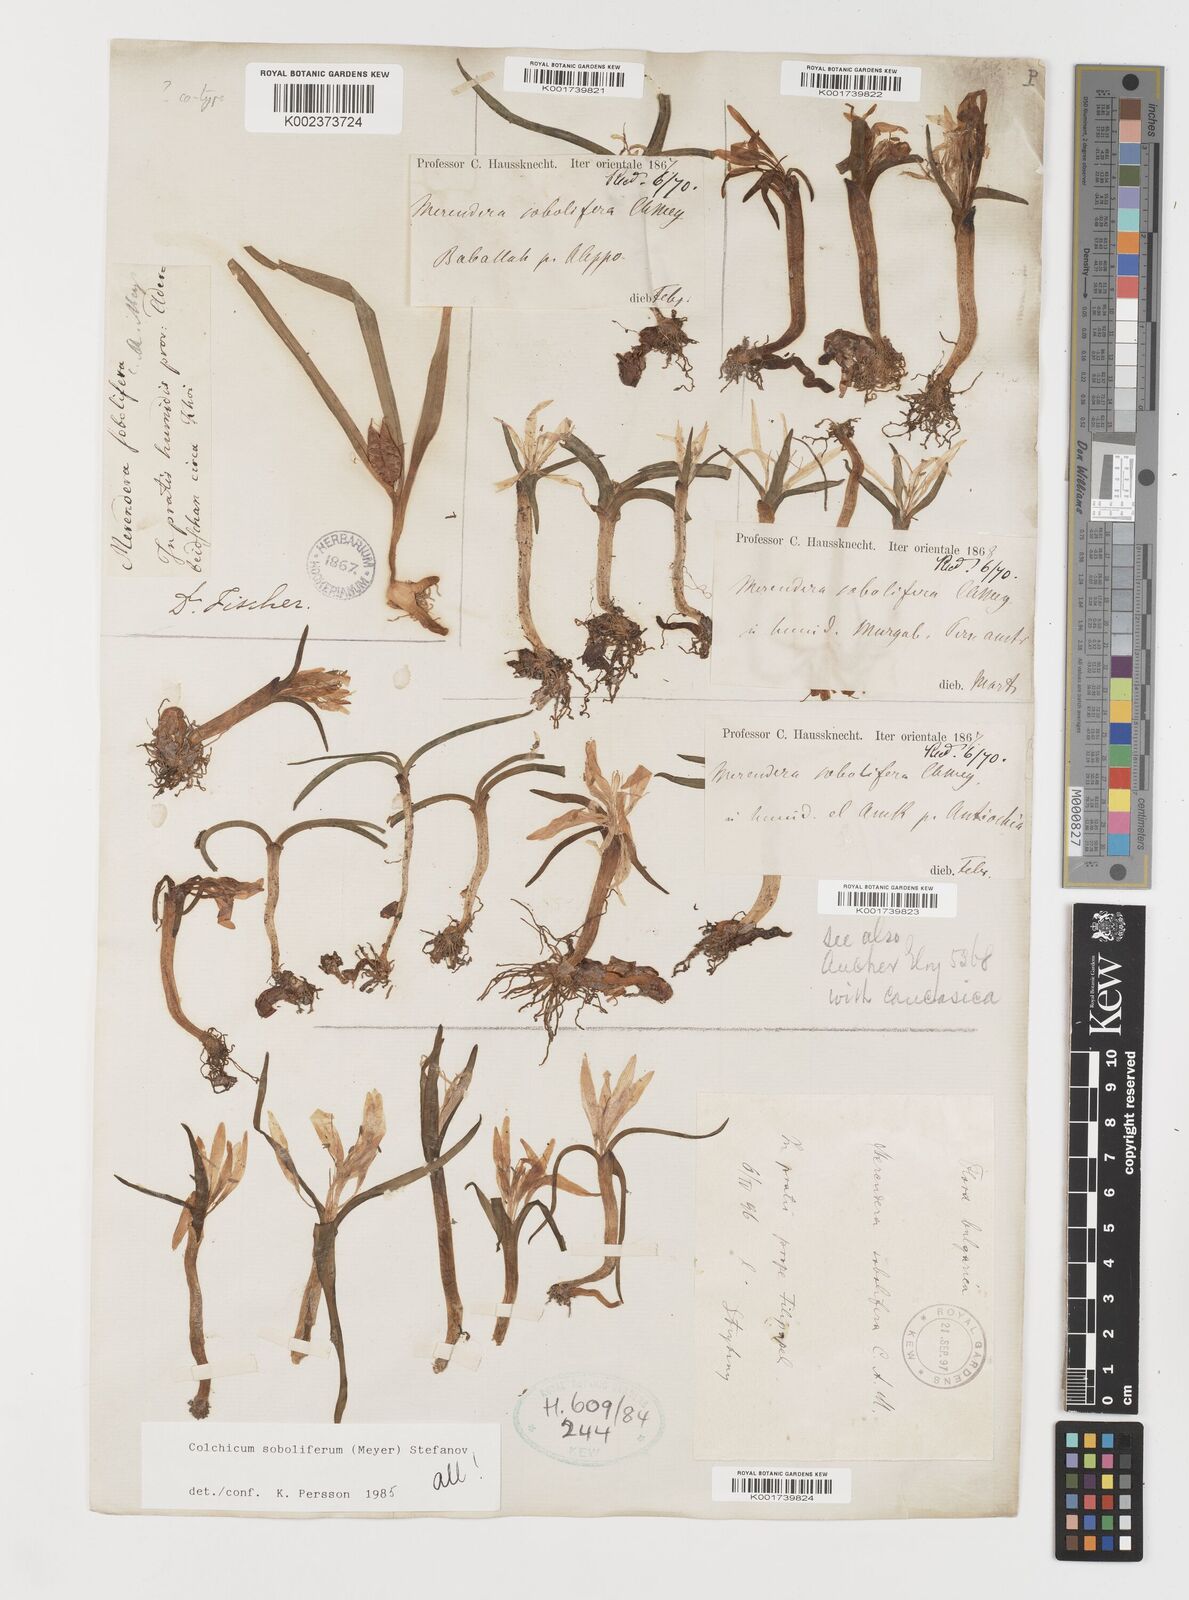 ROYAL BOTANIC GARDENS KEW
K002373724
ROYAL BOTANIC GARDENS KEW
K001739821
ROYAL BOTANIC GARDENS KEW
K001739822
P
? co-type
Professor C. Haussknecht. Iter orientale 1867
Recd. 6/70.
Merendera sobolifera CAMey
Baballah p. Aleppo.
dieb. Febr.
Merendera sobolifera
C. A. Mey
In pratis humidis prov: Aderbeidschan circa Khoi
Dr. Fischer.
HERBARIUM HOOKERIANUM
1867.
Professor C. Haussknecht. Iter orientale 1868
Recd. 6/70.
Merendera sobolifera CAMey.
in humid. Murgab.
dieb. Mart.
Professor C. Haussknecht. Iter orientale 1867
Recd. 6/70.
Merendera sobolifera CAMey.
in humid. el Amk p. Antiochia
dieb. Febr.
ROYAL BOTANIC GARDENS KEW
K001739823
see also
Aucher Eloy 5368
with caucasica
Flora bulgarica
Merendera sobolifera C. A. M.
In pratis prope Filipopel.
6/IV 96
ROYAL GARDENS KEW
21 SEP. 97
H. 609/84
244
KEW
Colchicum soboliferum (Meyer) Stefanov
all!
det./conf. K. Persson 1985
ROYAL BOTANIC GARDENS KEW
K001739824
inches
centimeters
Don Williams
Density
M000827
Royal Botanic Gardens
Kew
copyright reserved
0 1 2 3 4 5 6 7 8 9 10
cm